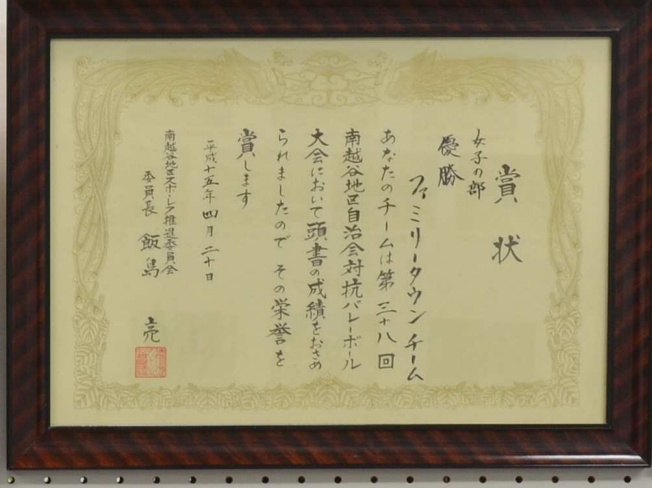 賞状
女子の部
優勝
ファミリータウンチーム
あなたのチームは第三十八回
南越谷地区自治会対抗バレーボール
大会において頭書の成績をおさめ
られましたので その栄誉を
賞します
平成十五年四月二十日
南越谷地区スポ・レク推進委員会
委員長 飯島 亮